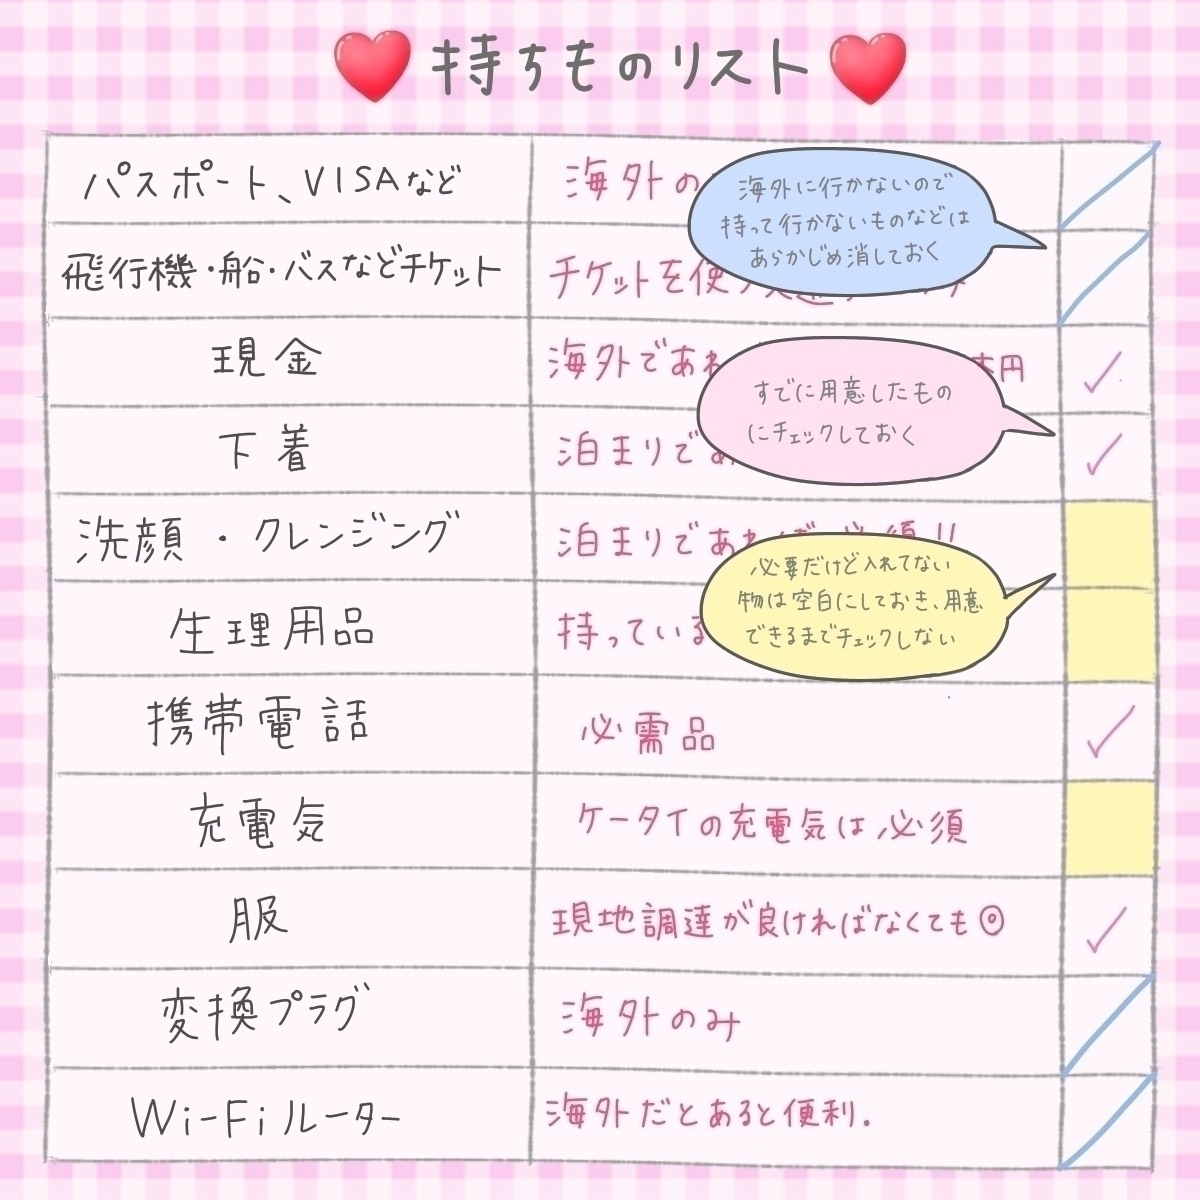 持ちものリスト
パスポート、VISAなど
海外の
海外に行かないので
持って行かないものなどは
あらかじめ消しておく
飛行機・船・バスなどチケット
チケットを使う
現金
海外であれ
本円
すでに用意したもの
にチェックしておく
下着
泊まりであ
洗顔・クレンジング
泊まりであれば必須!!
必要だけど入れてない
物は空白にしておき、用意
できるまでチェックしない
生理用品
持っている
携帯電話
必需品
充電気
ケータイの充電気は必須
服
現地調達が良ければなくても◎
変換プラグ
海外のみ
Wi-Fiルーター
海外だとあると便利.